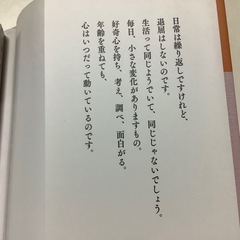 日常は繰り返しですけれど、
退屈はしないのです。
生活って同じようでいて、同じじゃないでしょう。
毎日、小さな変化がありますもの。
好奇心を持ち、考え、調べ、面白がる。
年齢を重ねても、
心はいつだって動いているのです。